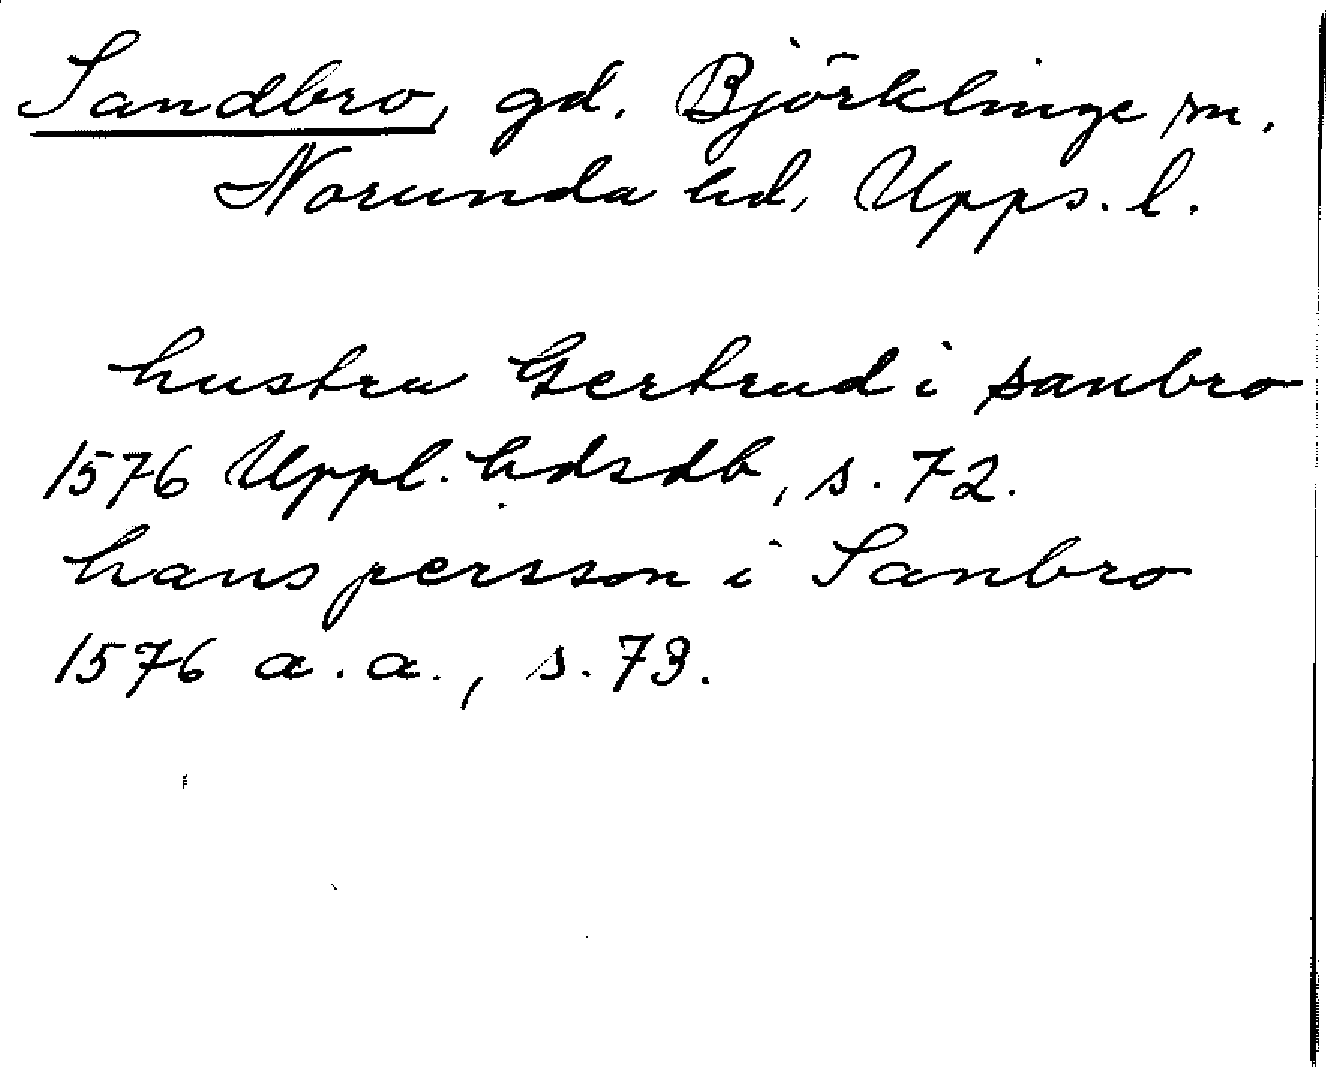 Sandbro, gd. Björklinge sn.
Norunda hd, Upps. l.
hustru Gertrud i sanbro
1576 Uppl. hdsdb, s. 72.
hans persson i Sanbro
1576 a.a., s. 73.